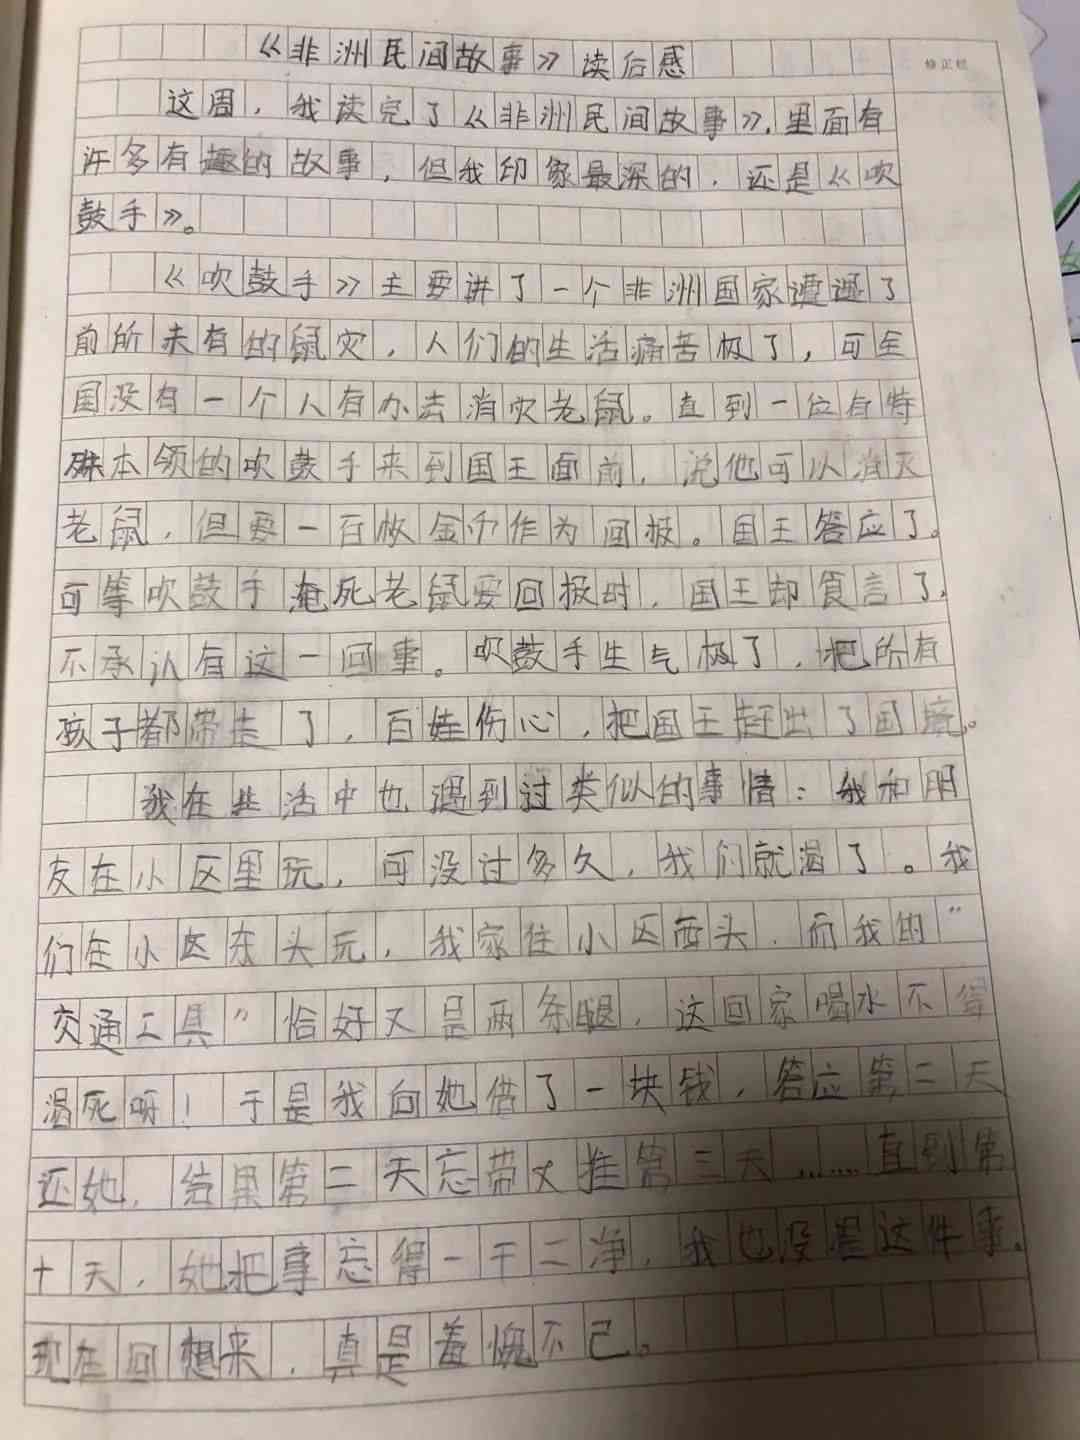 《非洲民间故事》读后感
修正栏
这周，我读完了《非洲民间故事》，里面有
许多有趣的故事，但我印象最深的，还是《吹
鼓手》。
《吹鼓手》主要讲了一个非洲国家遭遇了
前所未有的鼠灾，人们的生活痛苦极了，可全
国没有一个人有办法消灭老鼠。直到一位有特
殊本领的吹鼓手来到国王面前，说他可以消灭
老鼠，但要一百枚金币作为回报。国王答应了。
可等吹鼓手淹死老鼠要回报时，国王却食言了，
不承认有这一回事。吹鼓手生气极了，把所有
孩子都带走了，百姓伤心，把国王赶出了国境。
我在生活中也遇到过类似的事情：我和朋
友在小区里玩，可没过多久，我们就渴了。我
们在小区东头玩，我家住小区西头，而我的“
交通工具”恰好又是两条腿，这回家喝水不得
渴死呀！于是我向她借了一块钱，答应第二天
还她，结果第二天忘带又推第三天……直到第
十天，她把事忘得一干二净，我也没提这件事。
现在回想来，真是羞愧不已。